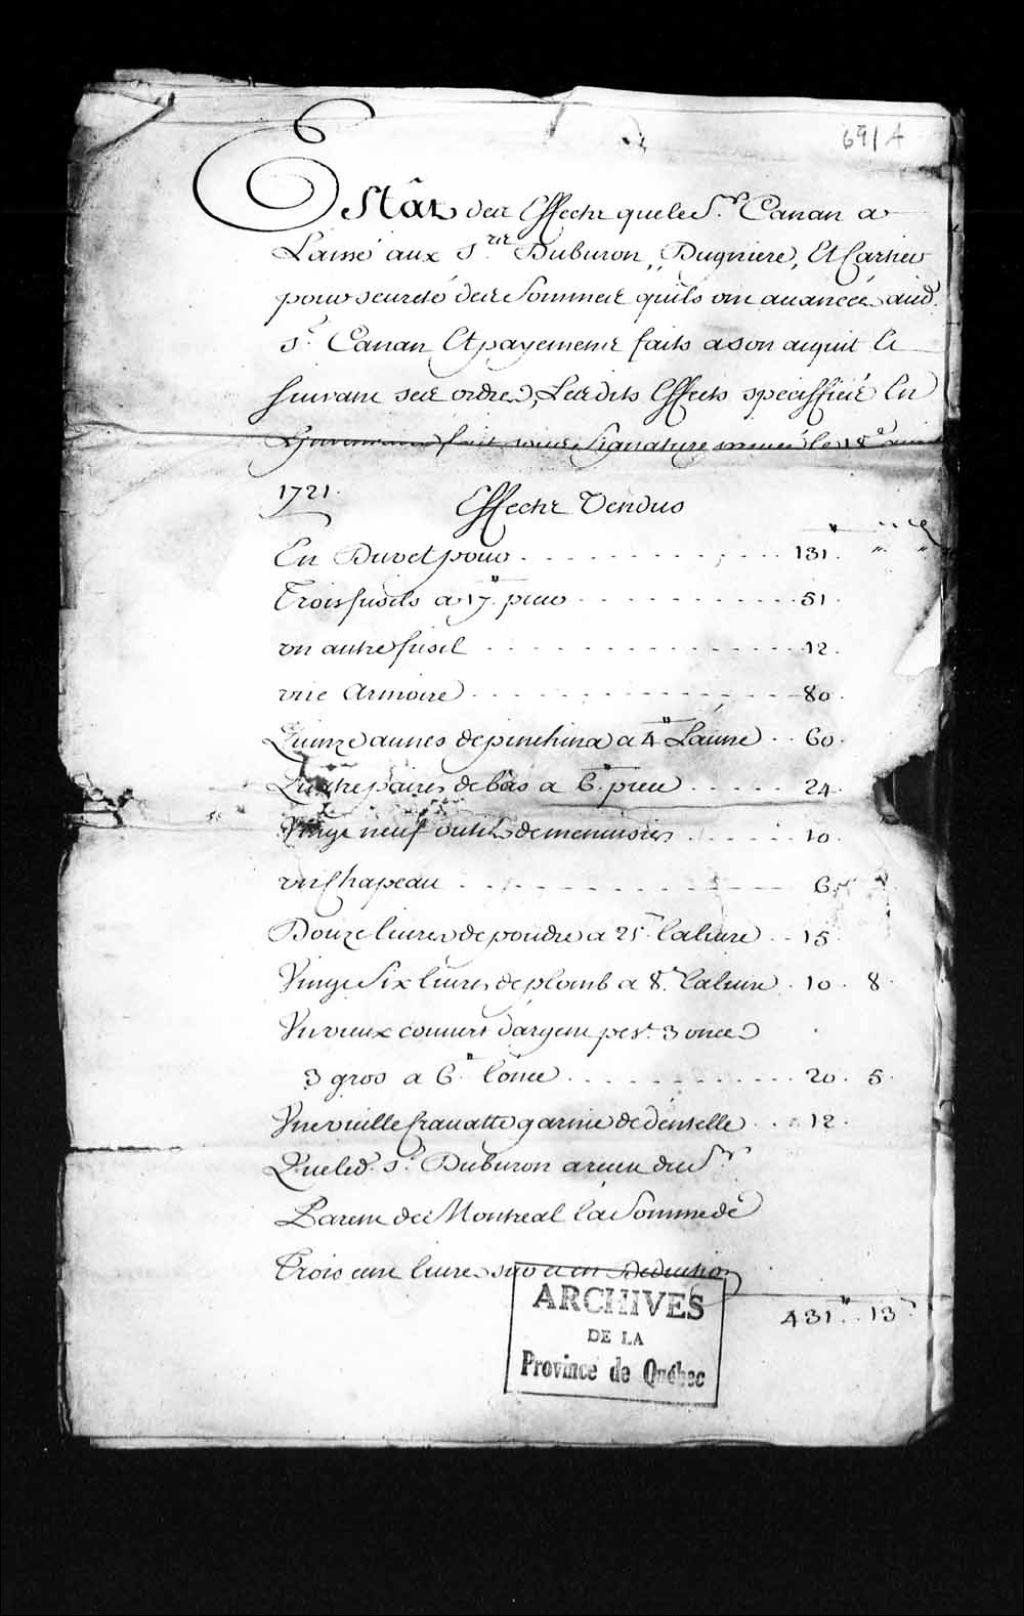 691A
Estât des Effects que le Sr. Canan a
Laissé aux Srs. Duburon, Dugniere, Et Cartier
pour seureté des Sommes quils ont auancées aud.
Sr. Canan Et payements faits a son acquit Et
suivant ses ordres, Lesdits Effects speciffiés En
fait sous Signature le 18e
1721.
Effects Vendus
En Duvet pour 131.
Trois fusils a 17 piece 51.
un autre fusil 12.
une Armoire 80.
Quinze aunes de pinchina a 4 Laune 60.
Quatre paires de bas a 6 piece 24.
Vingt neuf outils de menuisiers 10.
un Chapeau 6
Douze liures de poudre a 25s. la liure 15
Vingt Six liures de plomb a 8s. la liure 10. 8.
Un vieux couuert dargent pest. 3 onces
3 gros a 6 lonce 20. 5.
Vne vieille Crauatte garnie de dentelle 12.
Que led. Sr. Duburon a receu du Sr.
Parent de Montreal la Somme de
Trois cent liures en Deduction
431. 13
ARCHIVES
DE LA
Province de Québec